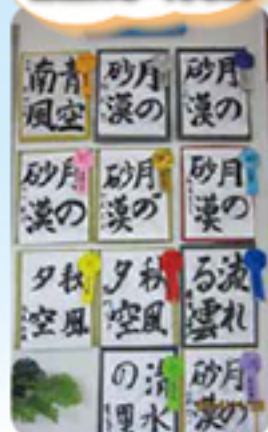 青空
南風
月の
砂漠
月の
砂漠
月の
砂漠
月の
砂漠
月の
砂漠
秋風
夕空
秋風
夕空
流れ
る雲
清水
の里
月の
砂漠